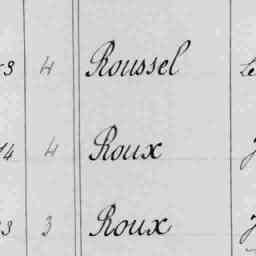 3 4 Roussel Le
14 4 Roux
3 3 Roux